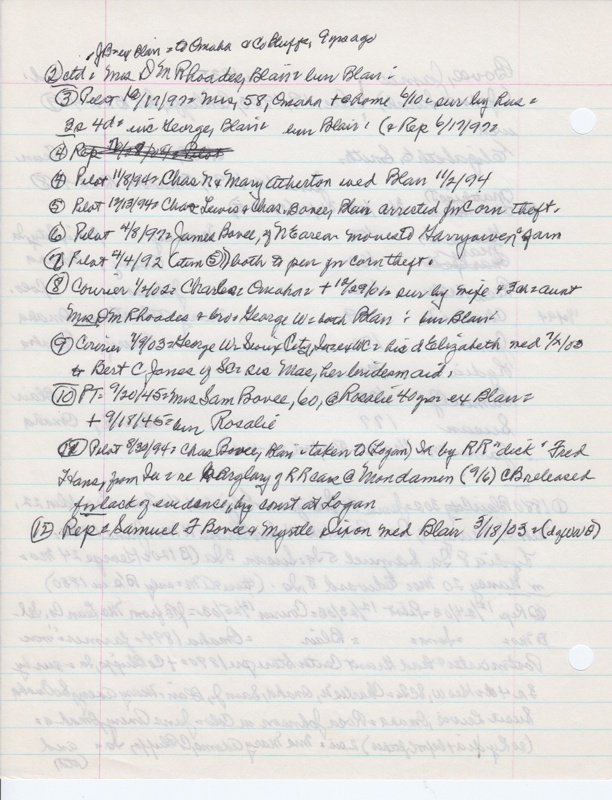 , JB = ex Blair = to Omaha & Co Bluffs, 9 mo ago
② ctd: Mrs D M Rhoades, Blair = bur Blair :
③ Pilot 6/17/97 = Mrs, 58, Omaha + @ home 6/10 = sur by hus =
2s 4d = inc George, Blair = bur Blair : (& Rep 6/17/97=
④ Rep Pilot
④ Pilot 11/8/94 = Chas N & Mary Atherton wed Blair 11/2/94
⑤ Pilot 12/13/94 = Chas Lewis & Chas. Bovee, Blair arrested for corn theft.
⑥ Pilot 4/8/97 = James Bovee, of N E area moves to Garryowen farm
⑦ Pilot 4/4/92 (item ⑤) both to pen for corn theft.
⑧ Courier 1/2/02 = Charles = Omaha = + 12/29/01 = sur by wife & 3 ch = aunt
Mrs D M Rhoades & bro = George W = both Blair : bur Blair
⑨ Courier 7/9/03 = George W = Sioux City, Ia = ex WC = his d Elizabeth wed 7/2/03
to Bert C Jones of SC = sis Mae, her bridesmaid.
⑩ PT = 9/20/45 = Mrs Sam Bovee, 60, @ Rosalie 40 yrs = ex Blair =
+ 9/18/45 = bur Rosalie
Pilot 8/30/94 = Chas Bovee, Blair = taken to (Logan) Ia by RR "dick" Fred
Hans, from Ia = re burglary of RR car @ Mondamin (9/6) CB released
for lack of evidence, by court at Logan
Rep = Samuel F Bovee & Myrtle Dixon wed Blair 3/18/03 =